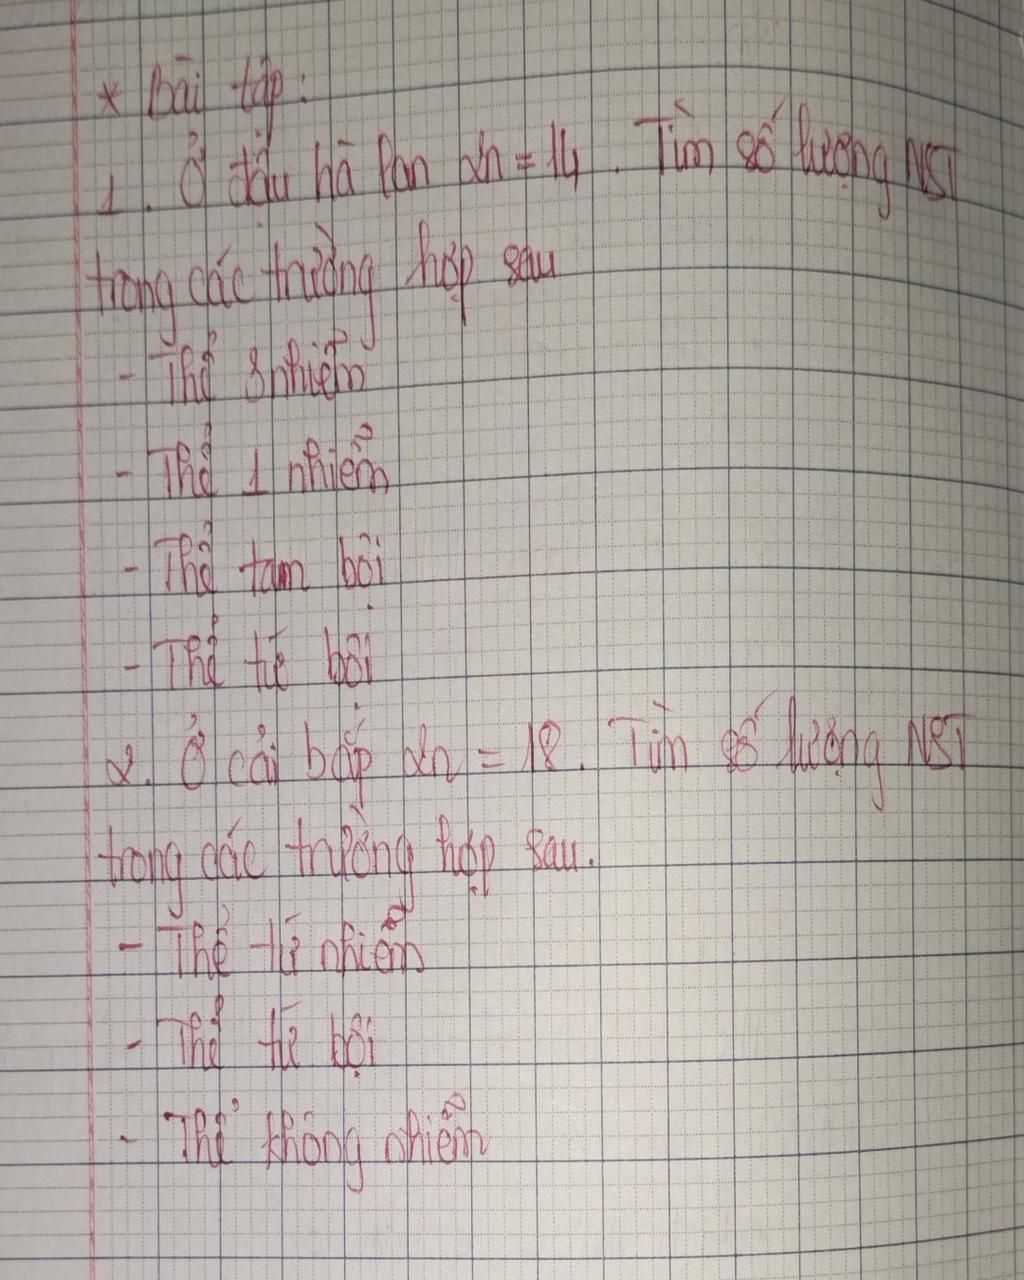 * Bài tập:
1. Ở đậu hà lan 2n = 14. Tìm số lượng NST
trong các trường hợp sau
- Thể 3 nhiễm
- Thể 1 nhiễm
- Thể tam bội
- Thể tứ bội
2. Ở cải bắp 2n = 18. Tìm số lượng NST
trong các trường hợp sau.
- Thể tứ nhiễm
- Thể tứ bội
- Thể không nhiễm